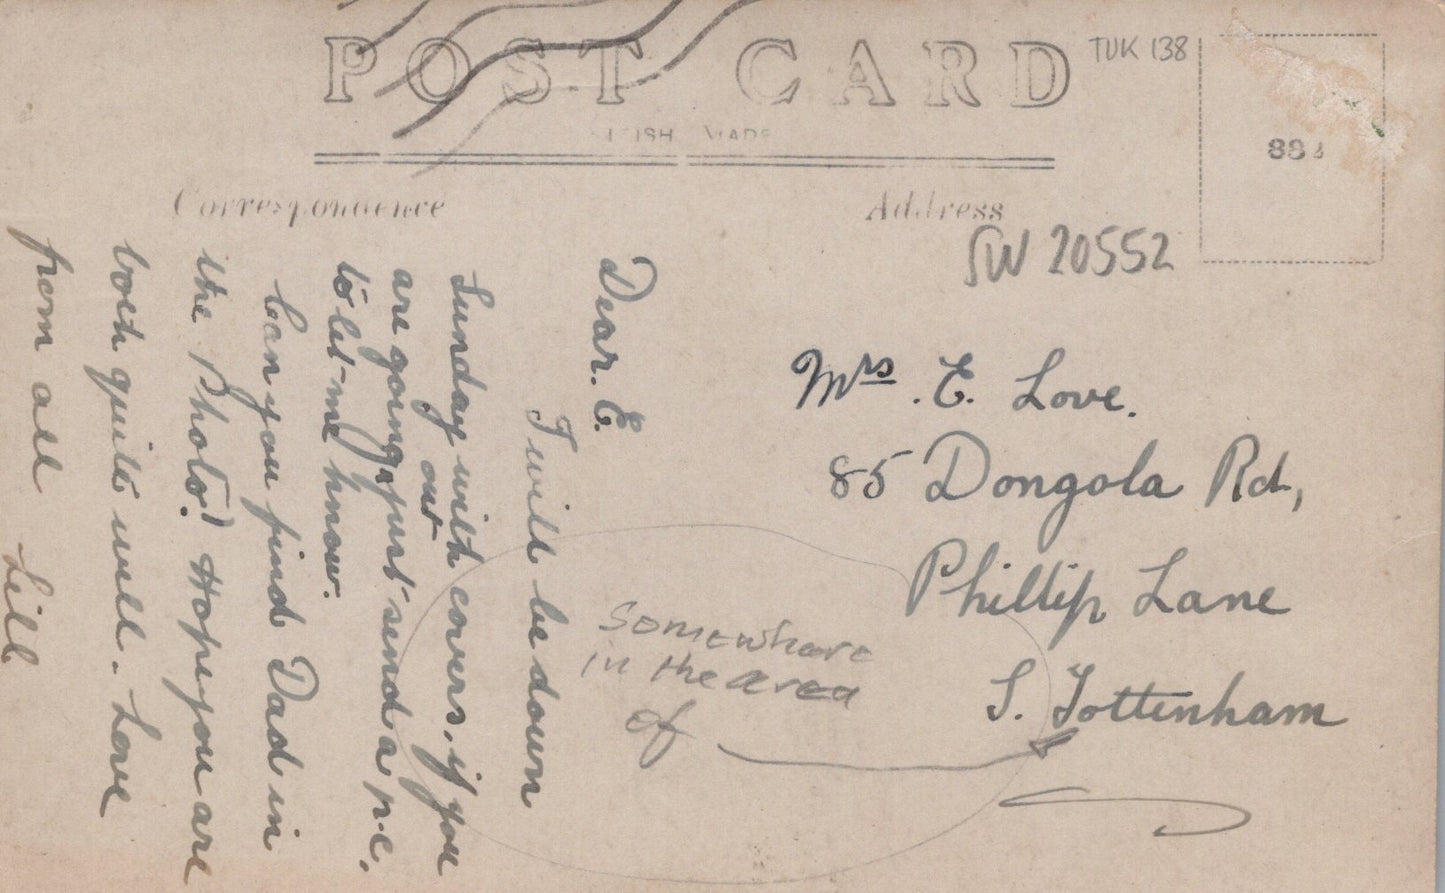 POST CARD
TUK 138
MADE
Correspondence
Address
SW 20552
Dear. E.
I will be down
Sunday with covers, if you
are going out just send a p.c.
to let me know.
Can you find Dad in
the Photo? Hope you are
both quite well. Love
from all Lill
Mrs. E. Love.
85 Dongola Rd,
Phillip Lane
S. Tottenham
Somewhere
in the area
of